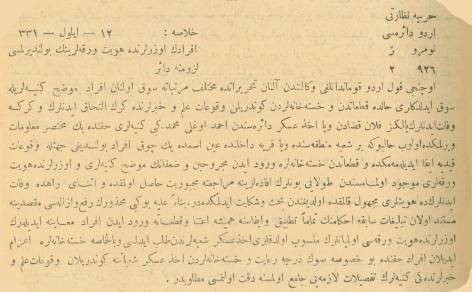 حربیه نظارتی
اردو دائره‌سی
خلاصه : ١٢ — ایلول — ٣٣١
نومرو
افرادك اوزرلرنده هویت ورقه‌لرینك بولندیرلمسی
٩٢٦ ٢
لزومنه دائر
اوچنجی قول اردو قوماندانلغی وكالتندن آلنان تحریراتده مختلف مرتباته سوق اولنان افراد موضح كنیه‌لریله
سوق ایدلدكلری حالده قطعاتدن و خسته‌خانه‌لردن كوندریلن وقوعات علم و خبرلرنده كرك التحاق ایدنلرك و كركسه
وفات ایدنلرك یالكز فلان قضادن ویا اخذ عسكر دائره‌سندن احمد اوغلی محمد كبی كنیه‌لری حقنده پك مختصر معلومات
ویرلمكده اولوب حالبوكه بر شعبه منطقه‌سنده ویا قریه داخلنده عین اسمده پك چوق افراد بولندیغی جهتله وقوعات
قیدیه ایفا ایدیله‌مه‌مكده و قطعاتدن خسته‌خانه‌لره ورود ایدن مجروحین و ضعفانك موضح كنیه‌لری و اوزرلرنده هویت
ورقه‌لری موجود اولمامسندن طولایی بونلرك افاده‌لرینه مراجعته مجبوریت حاصل اولمقده و اثنای راهده وفات
ایدنلرك ده هویتلری مجهول قالمقده اولدیغندن بحث و شكایت ایدلمكده‌در. بناءً علیه بوكبی محذورك رفع و ازاله‌سی مقصدینه
مستند اولان تبلیغات سابقه احكامنك تماماً تطبیق و ایفاسنه همت اعتنا و قطعاته ورود ایدن افراد معاینه ایدیله‌رك
اوزرلرنده هویت ورقه‌سی اولمیانلرك منسوب اولدقلری اخذعسكر شعبه‌لرندن طلب ایدلمسی وبالخاصه خسته‌خانه‌لره اعزام
ایدیلان افراد حقنده بو خصوصه صوك درجه رعایت و خسته‌خانه‌لردن اخذ عسكر شعباتنه كوندریلان وقوعات علم و
خبرلرنده‌كی كنیه‌لرك تفصیلات لازمه‌یی جامع اولمسنه دقت اولنمسی مطلوبدر.